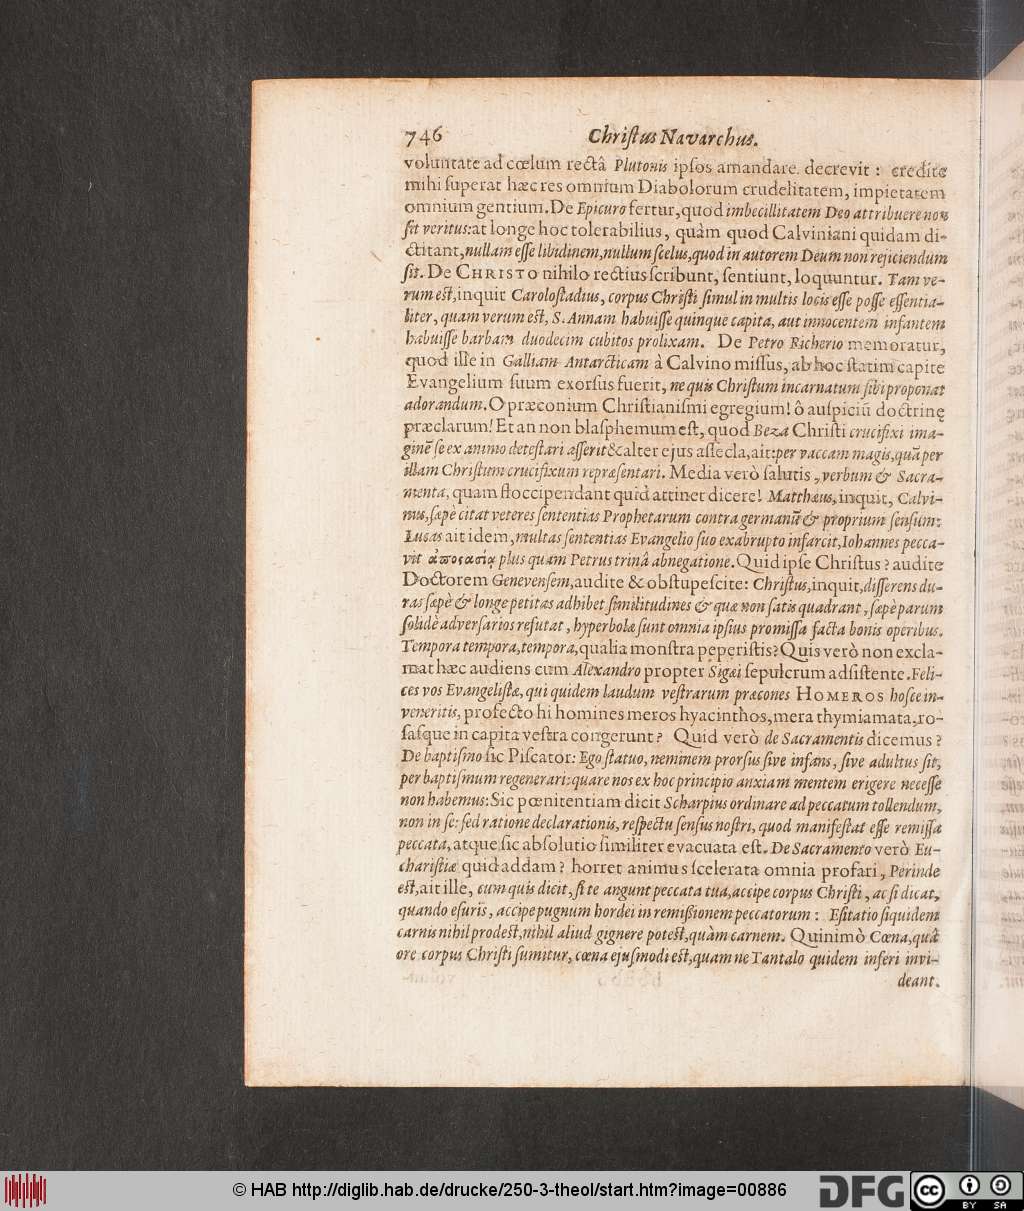 746 Chriſtus Navarchus.
voluntate ad cœlum rectâ Plutonis ipſos amandare decrevit : credite
mihi ſuperat hæc res omnium Diabolorum crudelitatem, impietatem
omnium gentium. De Epicuro fertur, quod imbecillitatem Deo attribuere non
ſit veritus: at longe hoc tolerabilius, quàm quod Calviniani quidam di-
ctitant, nullam eſſe libidinem, nullum ſcelus, quod in autorem Deum non rejiciendum
ſit. De CHRISTO nihilo rectius ſcribunt, ſentiunt, loquuntur. Tam ve-
rum eſt, inquit Caroloſtadius, corpus Chriſti ſimul in multis locis eſſe poſſe eſſentia-
liter, quam verum eſt, S. Annam habuiſſe quinque capita, aut innocentem infantem
habuiſſe barbam duodecim cubitos prolixam. De Petro Richerio memoratur,
quod ille in Galliam Antarcticam à Calvino miſſus, ab hoc ſtatim capite
Evangelium ſuum exorſus fuerit, ne quis Chriſtum incarnatum ſibi proponat
adorandum. O præconium Chriſtianiſmi egregium! ô auſpiciũ doctrinę
præclarum! Et an non blaſphemum eſt, quod Beza Chriſti crucifixi ima-
ginẽ ſe ex animo deteſtari aſſerit & alter ejus aſſecla, ait: per vaccam magis, quã per
illam Chriſtum crucifixum repræſentari. Media verò ſalutis, verbum & Sacra-
menta, quam floccipendant quid attinet dicere! Matthæus, inquit, Calvi-
nus, ſæpè citat veteres ſententias Prophetarum contra germanũ & proprium ſenſum:
Lucas ait idem, multas ſententias Evangelio ſuo exabrupto infarcit, Iohannes pecca-
vit ἀποςασίᾳ plus quam Petrus trinâ abnegatione. Quid ipſe Chriſtus? audite
Doctorem Genevenſem, audite & obſtupeſcite: Chriſtus, inquit, diſſerens du-
ras ſæpè & longe petitas adhibet ſimilitudines & quæ non ſatis quadrant, ſæpè parum
ſolidè adverſarios refutat, hyperbolæ ſunt omnia ipſius promiſſa facta bonis operibus.
Tempora tempora, tempora, qualia monſtra peperiſtis? Quis verò non excla-
mat hæc audiens cum Alexandro propter Sigæi ſepulcrum adſiſtente. Feli-
ces vos Evangeliſtæ, qui quidem laudum veſtrarum præcones HOMEROS hoſce in-
veneritis, profecto hi homines meros hyacinthos, mera thymiamata, ro-
ſaſque in capita veſtra congerunt? Quid verò de Sacramentis dicemus?
De baptiſmo ſic Piſcator: Ego ſtatuo, neminem prorſus ſive infans, ſive adultus ſit,
per baptiſmum regenerari: quare nos ex hoc principio anxiam mentem erigere neceſſe
non habemus: Sic pœnitentiam dicit Scharpius ordinare ad peccatum tollendum,
non in ſe: ſed ratione declarationis, reſpectu ſenſus noſtri, quod manifeſtat eſſe remiſſa
peccata, atque ſic abſolutio ſimiliter evacuata eſt. De Sacramento verò Eu-
chariſtiæ quid addam? horret animus ſcelerata omnia profari, Perinde
eſt, ait ille, cum quis dicit, ſi te angunt peccata tua, accipe corpus Chriſti, ac ſi dicat,
quando eſuris, accipe pugnum hordei in remiſſionem peccatorum : Eſitatio ſiquidem
carnis nihil prodeſt, nihil aliud gignere poteſt, quàm carnem. Quinimò Cœna, quâ
ore corpus Chriſti ſumitur, cœna ejuſmodi eſt, quam ne Tantalo quidem inferi invi-
deant.
© HAB http://diglib.hab.de/drucke/250-3-theol/start.htm?image=00886
DFG
cc BY SA